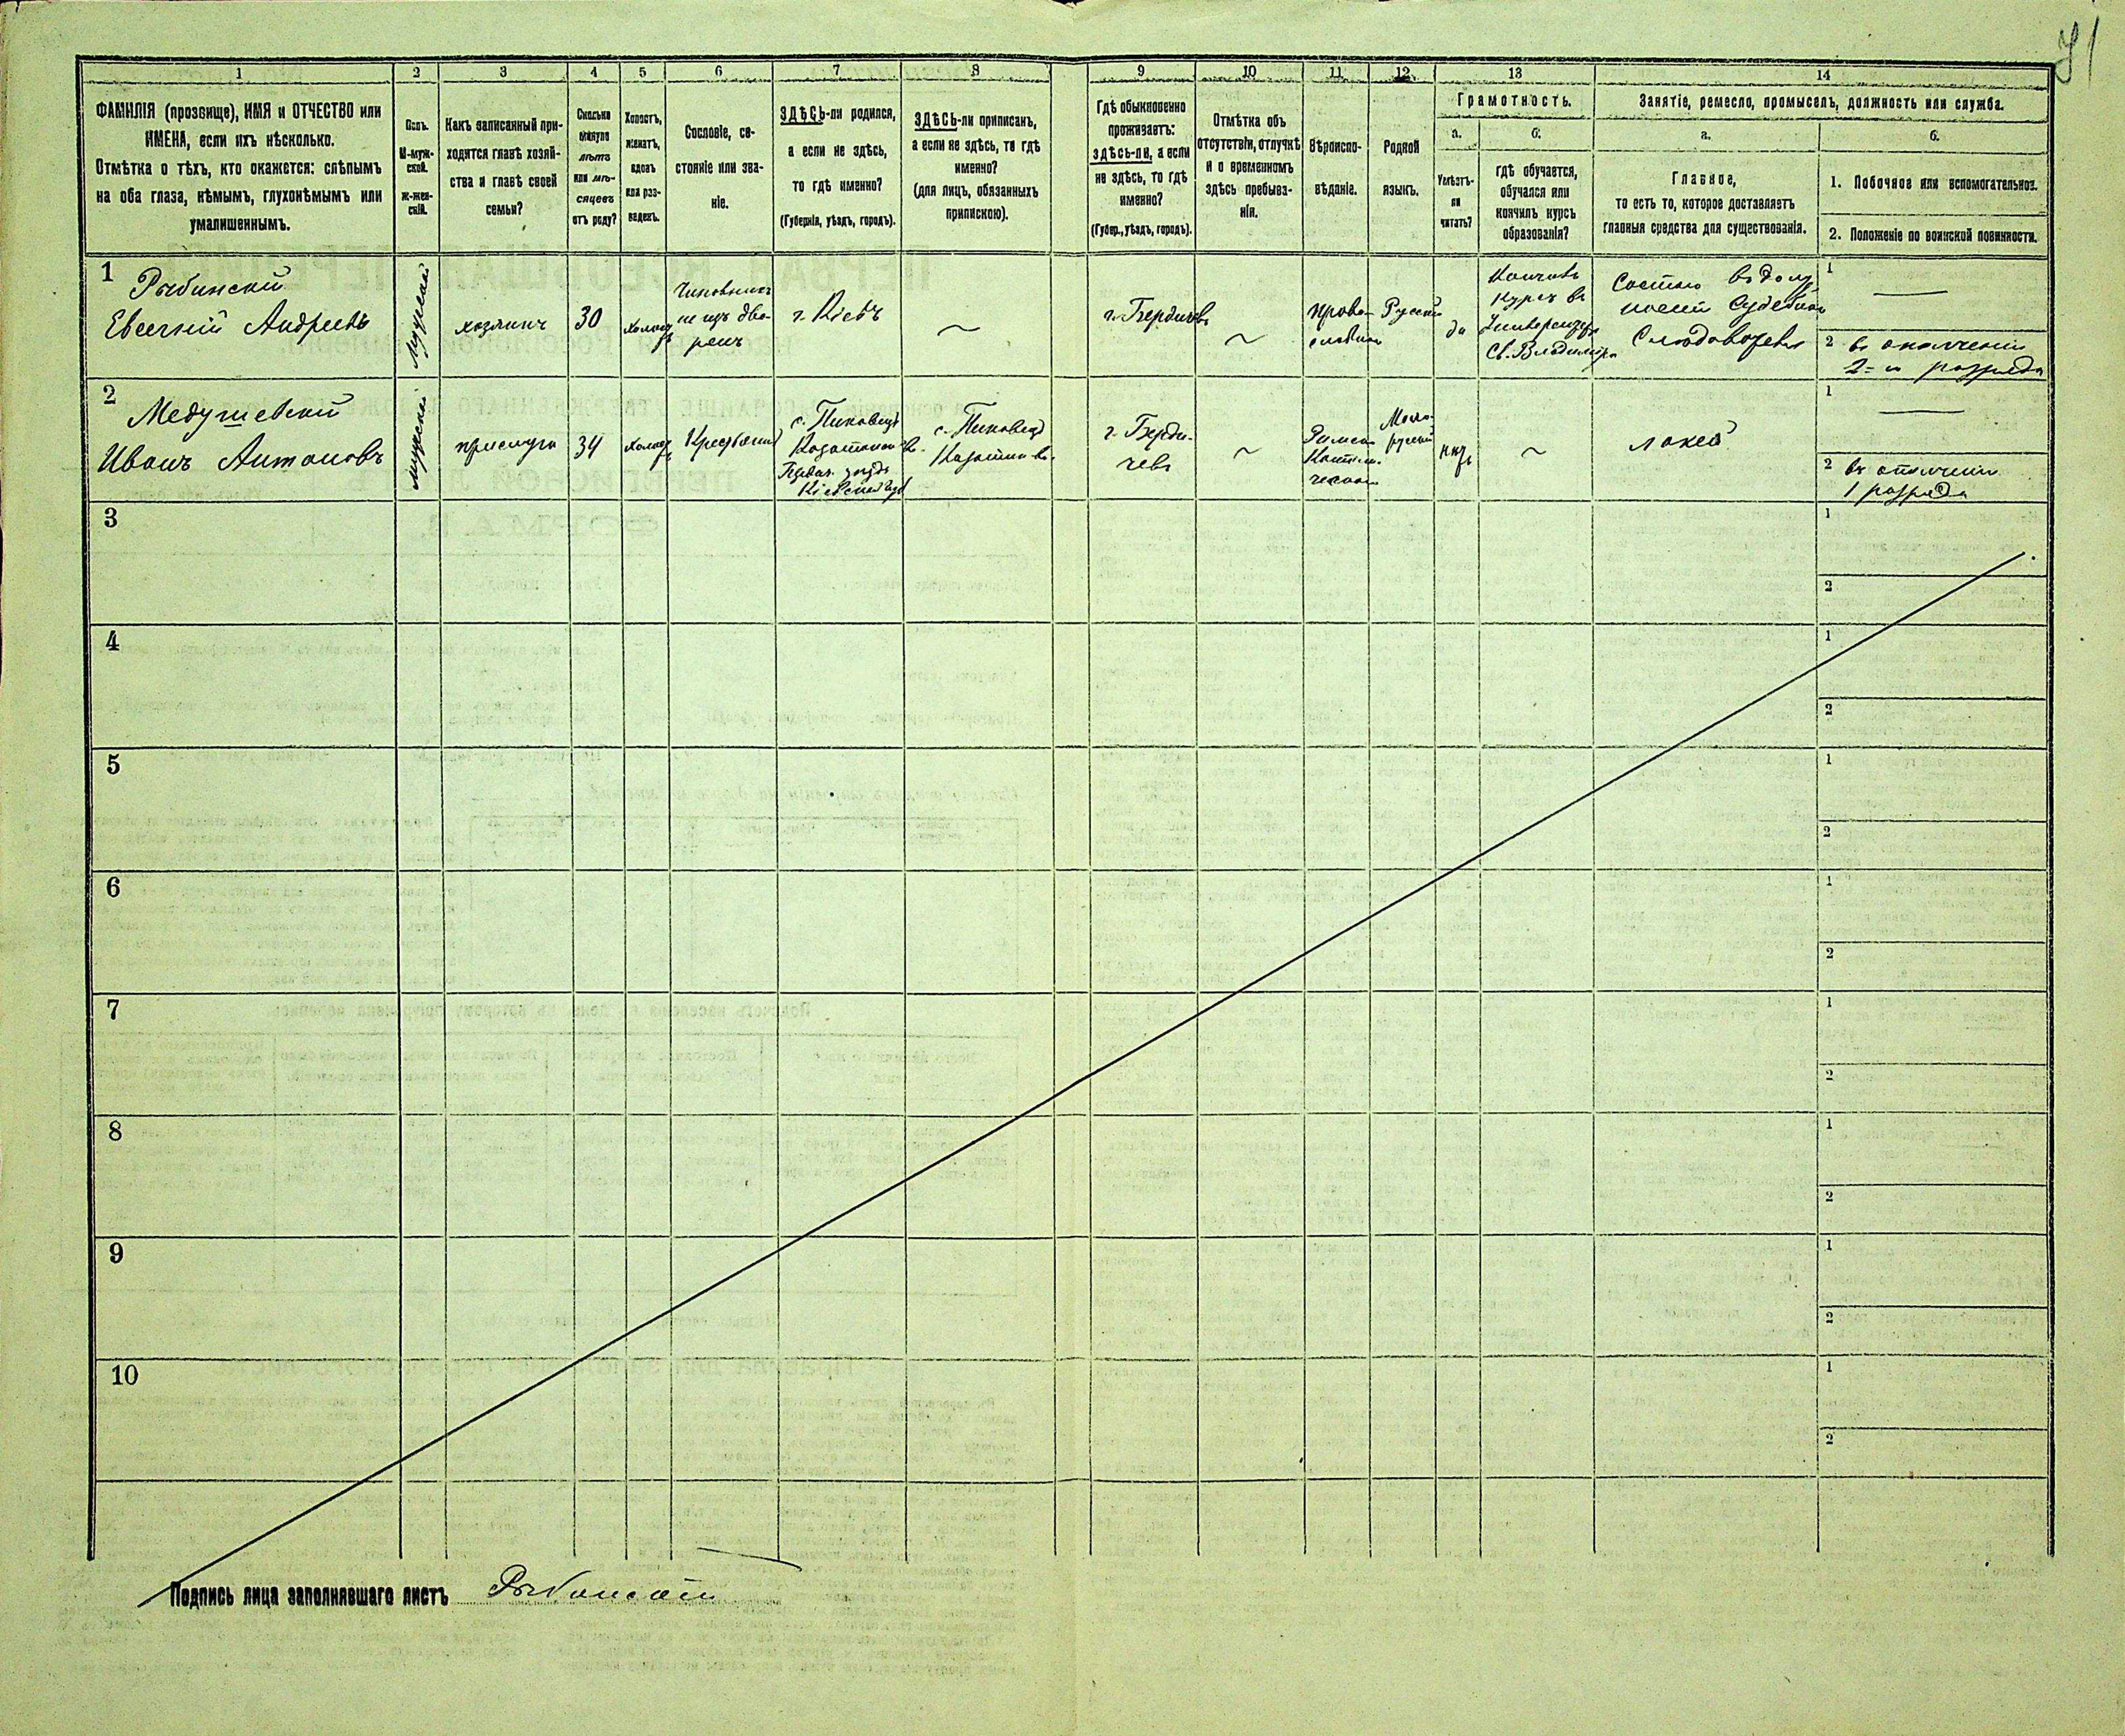 91
1 2 3 4 5 6 7 8 9 10 11 12 13 14
ФАМИЛІЯ (прозвище), ИМЯ и ОТЧЕСТВО или
ИМЕНА, если ихъ нѣсколько.
Отмѣтка о тѣхъ, кто окажется: слѣпымъ
на оба глаза, нѣмымъ, глухонѣмымъ или
умалишеннымъ.
Полъ.
М-муж-
ской.
Ж-жен-
скій.
Какъ записанный при-
ходится главѣ хозяй-
ства и главѣ своей
семьи?
Сколько
минуло
лѣтъ
или мѣ-
сяцевъ
отъ роду?
Холостъ,
женатъ,
вдовъ
или раз-
веденъ.
Сословіе, со-
стояніе или зва-
ніе.
ЗДѢСЬ-ли родился,
а если не здѣсь,
то гдѣ именно?
(Губернія, уѣздъ, городъ).
ЗДѢСЬ-ли приписанъ,
а если не здѣсь, то гдѣ
именно?
(для лицъ, обязанныхъ
припискою).
Гдѣ обыкновенно
проживаетъ:
здѣсь-ли, а если
не здѣсь, то гдѣ
именно?
(Губер., уѣздъ, городъ).
Отмѣтка объ
отсутствіи, отлучкѣ
и о временномъ
здѣсь пребыва-
ніи.
Вѣроиспо-
вѣданіе.
Родной
языкъ.
Грамотность.
а.
Умѣетъ-
ли
читать?
б.
гдѣ обучается,
обучался или
кончилъ курсъ
образованія?
Занятіе, ремесло, промыселъ, должность или служба.
а.
Главное,
то есть то, которое доставляетъ
главныя средства для существованія.
б.
1. Побочное или вспомогательное.
2. Положеніе по воинской повинности.
1
Рыбинскій
Евгеній Андреевъ
мужской
хозяинъ
30
холостъ
Чиновникъ
не изъ дво-
рянъ
г. Кіевъ
г. Бердичевъ
право-
славное
Русскій
да
Кончилъ
курсъ въ
Университ.
Св. Владиміра
Состою въ долж
ности Судебнаго
Слѣдователя
1
2 въ ополченіи
2-го разряда
2
Медушевскій
Иванъ Антоновъ
мужской
прислуга
34
холостъ
Крестьянинъ
с. Пиковецъ
Казатинской в.
Бердич. уѣзда
Кіевской губ
с. Пиковецъ
Казатин. в.
г. Берди-
чевъ
Римско
Католи-
ческое
Мало-
русскій
нѣтъ
лакей
1
2 въ ополченіи
1 разряда
3
1
2
4
1
2
5
1
2
6
1
2
7
1
2
8
1
2
9
1
2
10
1
2
Подпись лица заполнявшаго листъ Рыбинскій